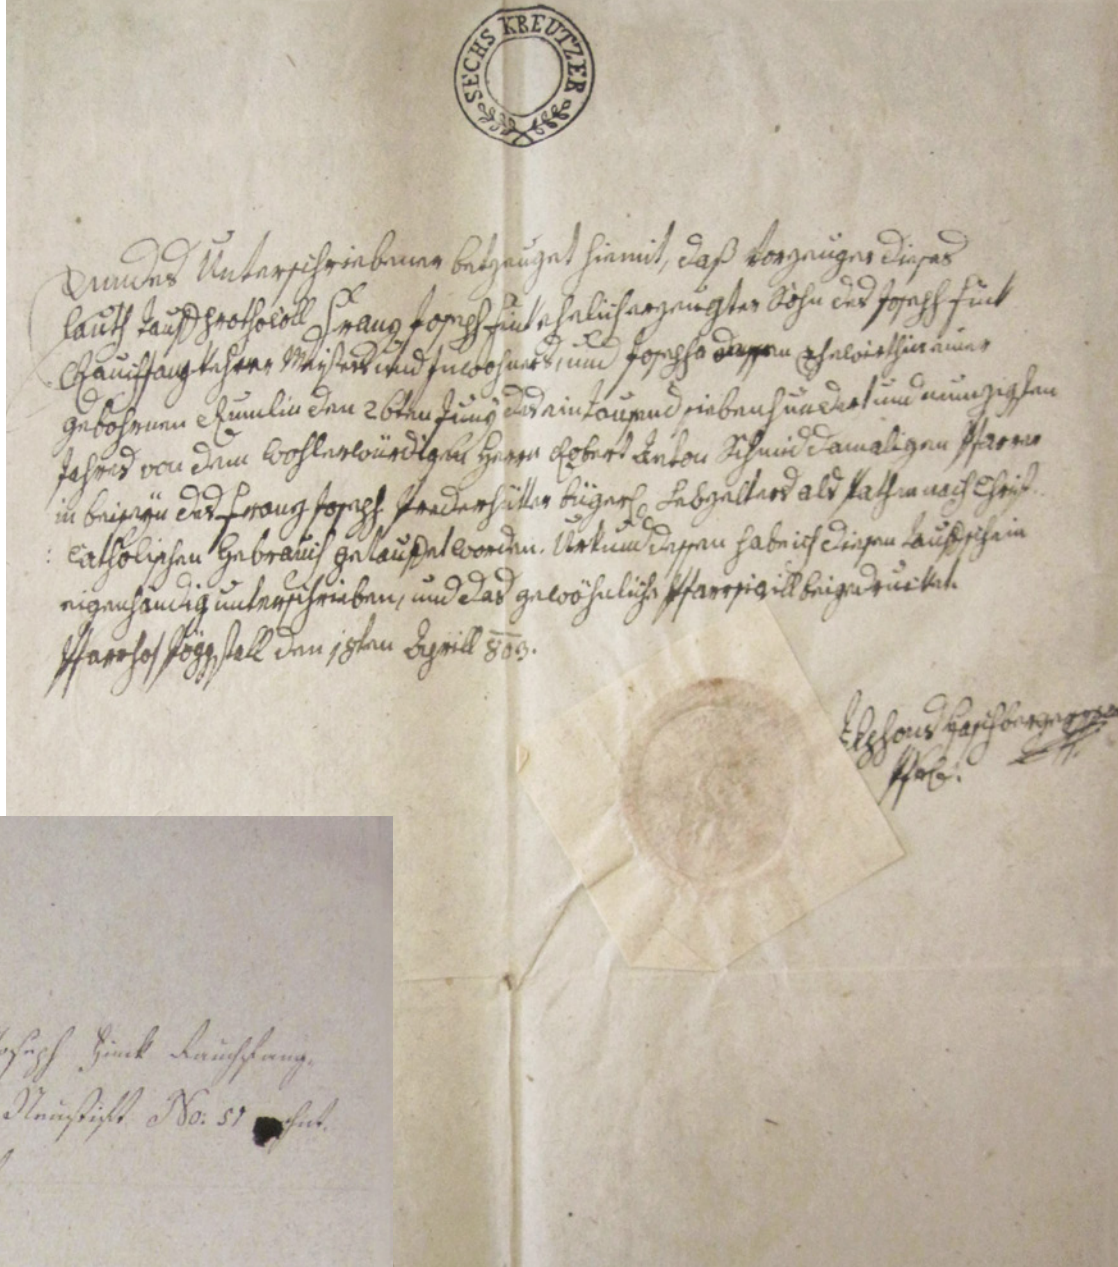 SECHS KREUTZER
Endes Unterschriebener betzeuget hiemit, daß Vorzeuger dieses
lauth Taufprothocoll Franz Joseph Fink ehelich erzeugter Sohn des Joseph Fink
Rauchfangkehrer Meisters und Inwohners, und Josepha dessen Ehewirthin einer
gebohrnen den 26ten Juny des ein tausend siebenhundert und neunzigsten
Jahres von dem Wohlerwürdigen Herrn Robert Anton Schmid damaligen Pfarrer
in beiseyn des Franz Joseph bürgerl. Lebzelters als Pathen nach Christ
Catholischen Gebrauch getaufet worden. Urkund dessen habe ich diesen Taufschein
eigenhändig unterschrieben, und das gewöhnliche Pfarrsigill beigedrucket.
Pfarrhof Pöggstall den 18ten Aprill 803.
Haschberger
Joseph Fink Rauchfang.
Neustift No: 51